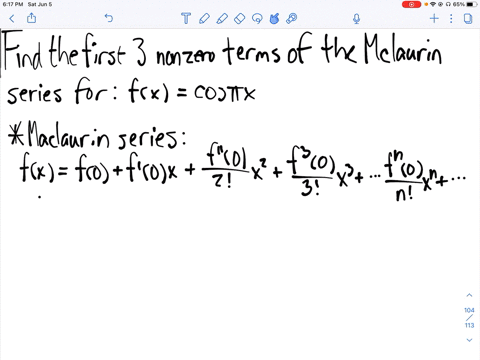 6:17 PM Sat Jun 5
65%
Find the first 3 nonzero terms of the Mclaurin
series for: f(x) = cosπx
*Maclaurin series:
f(x) = f(0) + f'(0)x + f"(0)/2! x² + f³(0)/3! x³ + ... fⁿ(0)/n! xⁿ + ...
104
/
113